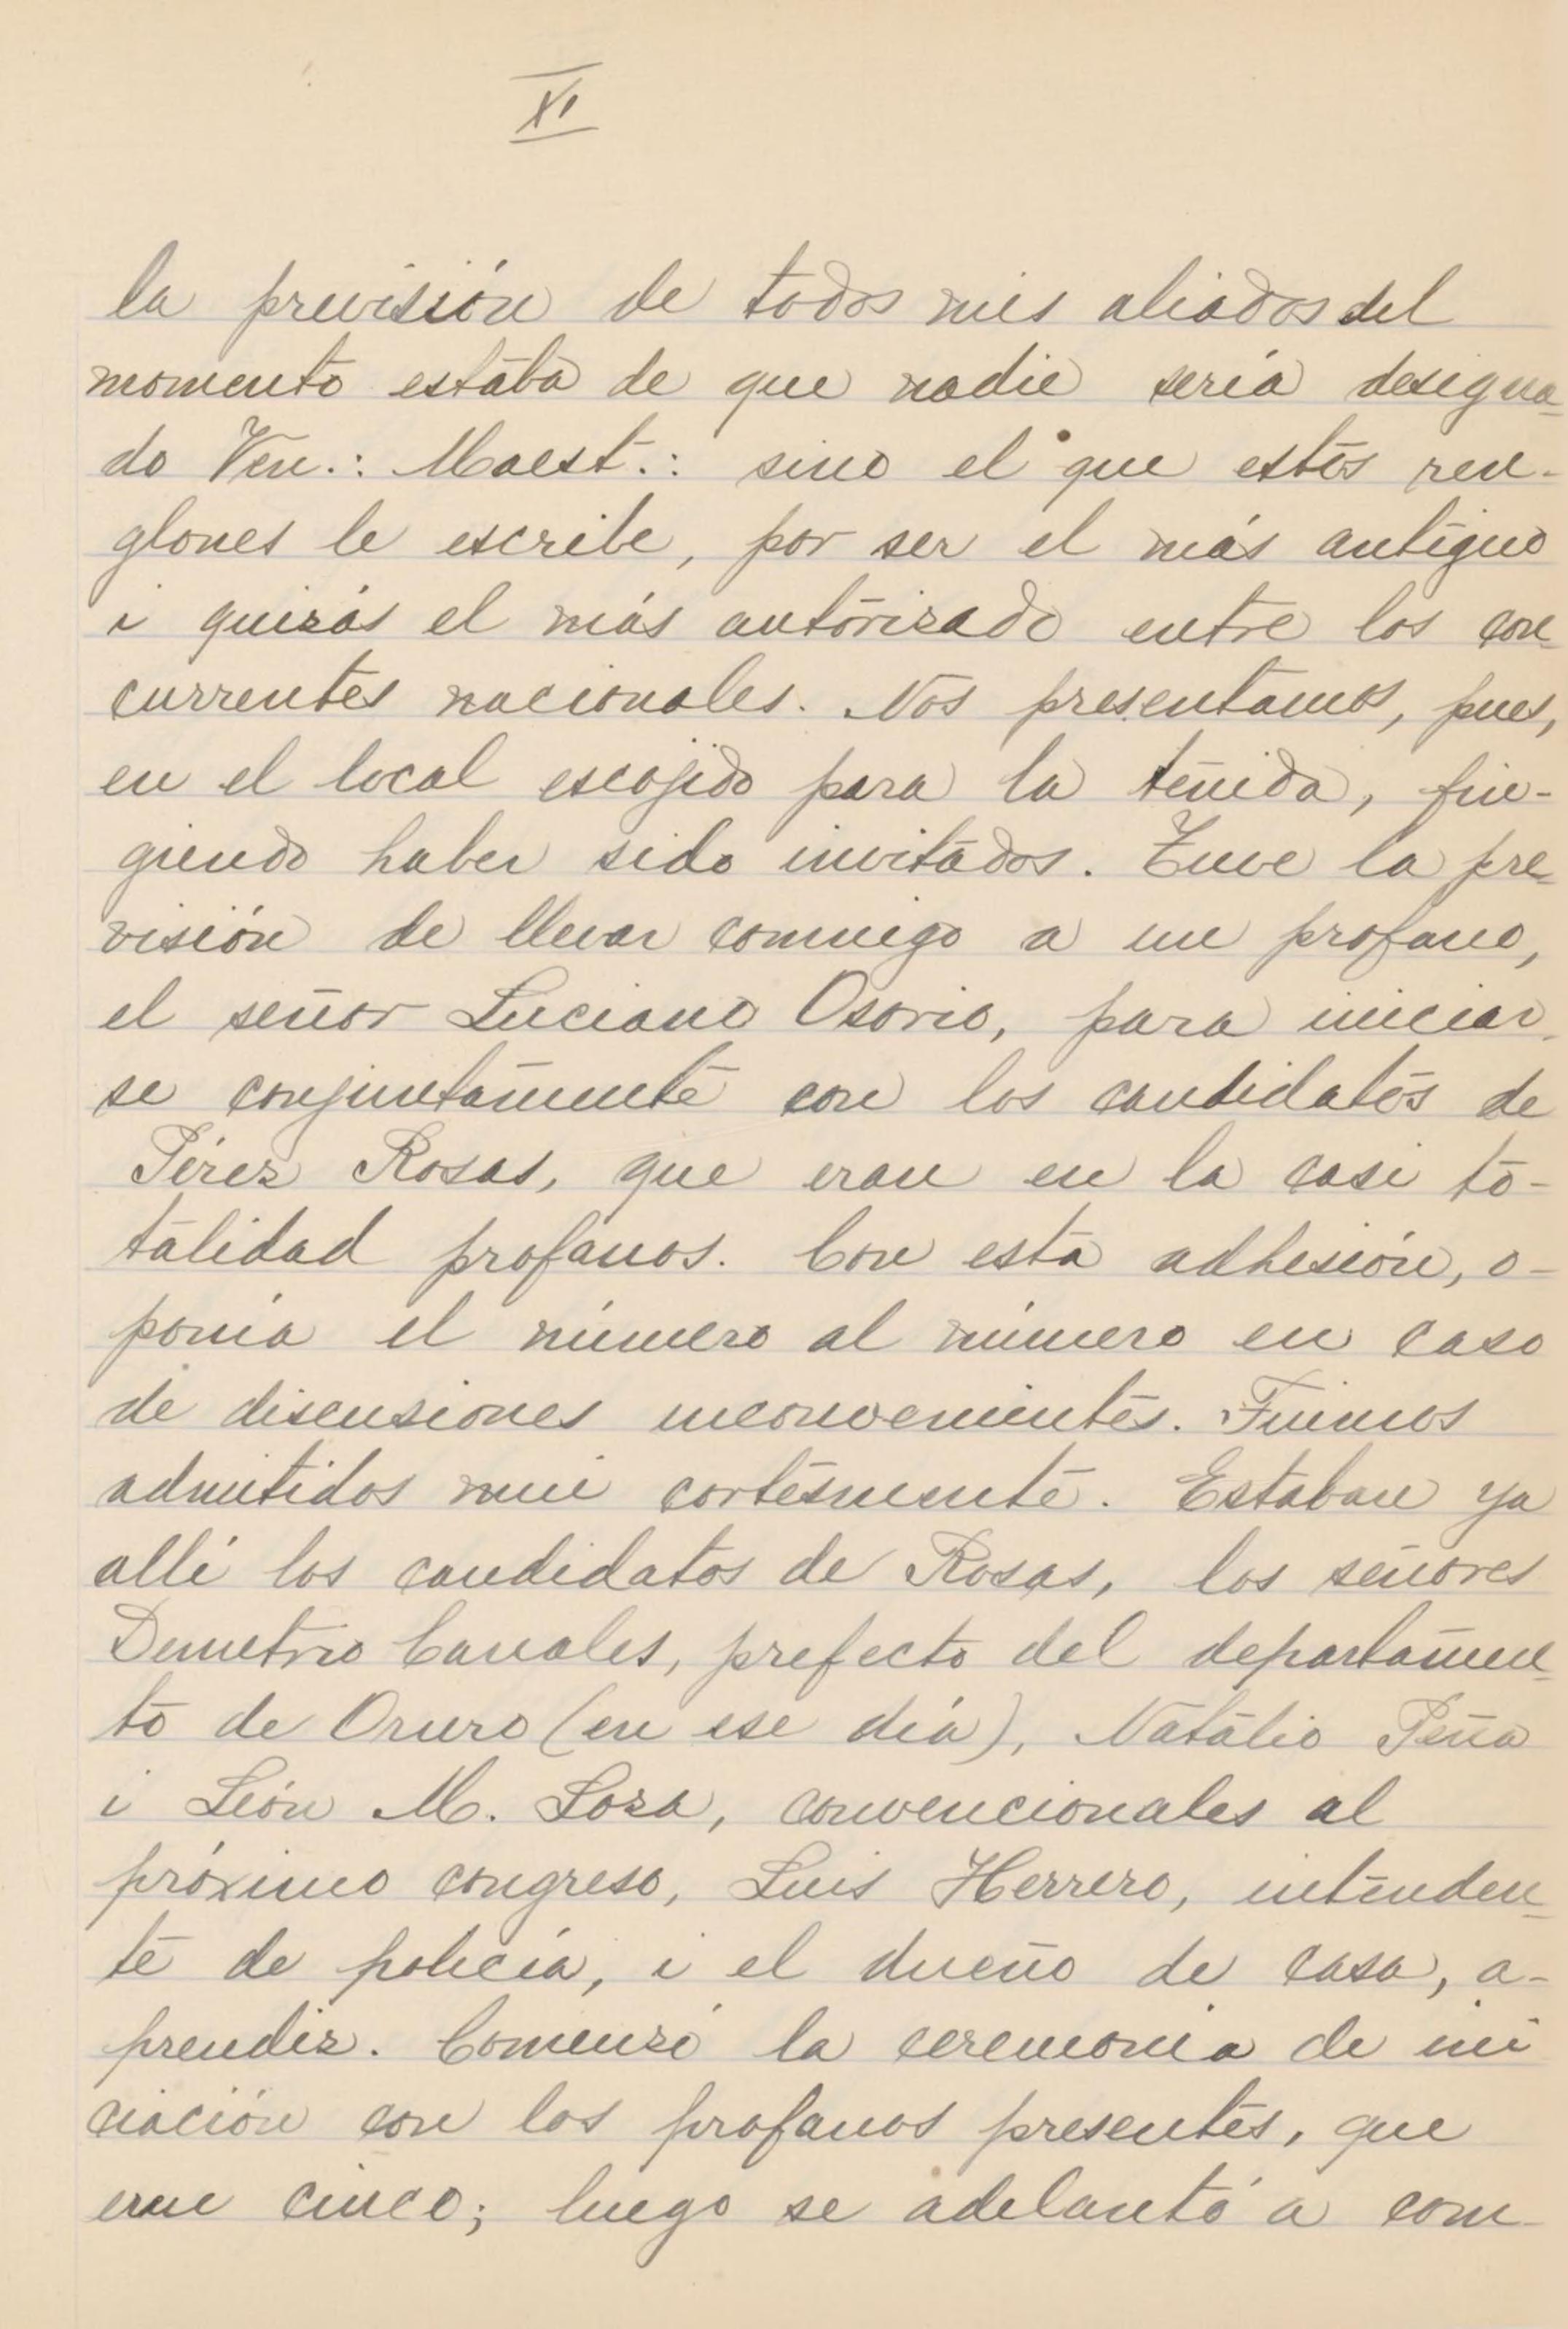 XI
la previsión de todos mis aliados del
momento estaba de que nadie sería designa-
do Ven.: Maest.: sino el que estos ren-
glones le escribe, por ser el más antiguo
i quizás el más autorizado entre los con-
currentes nacionales. Nos presentamos, pues,
en el local escojido para la tenida, fin-
giendo haber sido invitados. Tuve la pre-
visión de llevar conmigo a un profano,
el señor Luciano Osorio, para iniciar-
se conjuntamente con los candidatos de
Pérez Rosas, que eran en la casi to-
talidad profanos. Con esta adhesión, o-
ponía el número al número en caso
de discusiones inconvenientes. Fuimos
admitidos mui cortésmente. Estaban ya
allí los candidatos de Rosas, los señores
Demetrio Canales, prefecto del departamen-
to de Oruro (en ese día), Natalio Peña
i León M. Loza, convencionales al
próximo congreso, Luis Herrero, intenden-
te de policía, i el dueño de casa, a-
prendiz. Comenzó la ceremonia de ini
ciación con los profanos presentes, que
eran cinco; luego se adelantó a com-